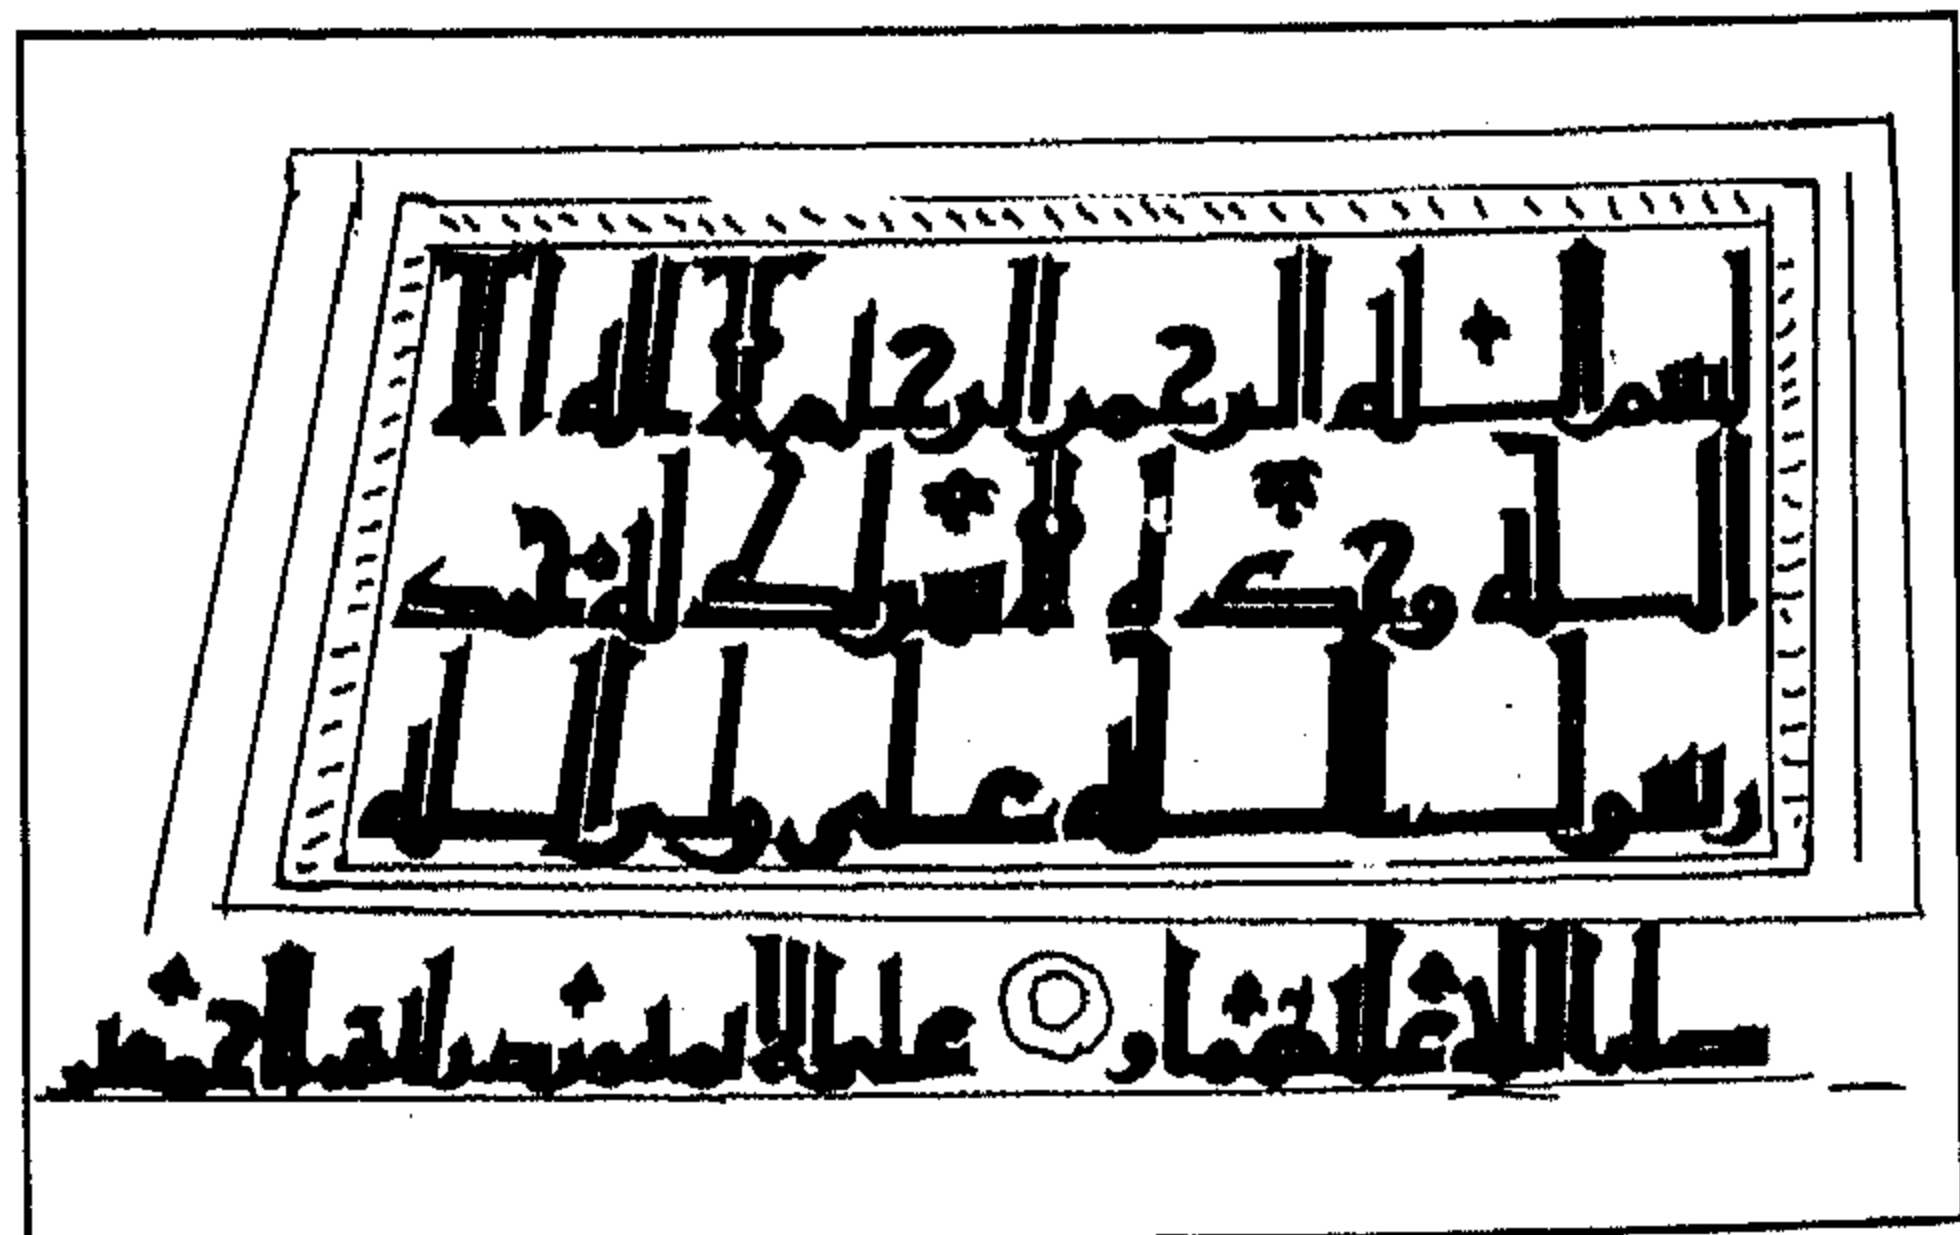 بسم الله الرحمن الرحيم لا اله الا
الله وحده لا شريك له محمد
رسول الله علي ولي الله
صلى الله عليهما و على الائمة من ذريتهما اجمعين